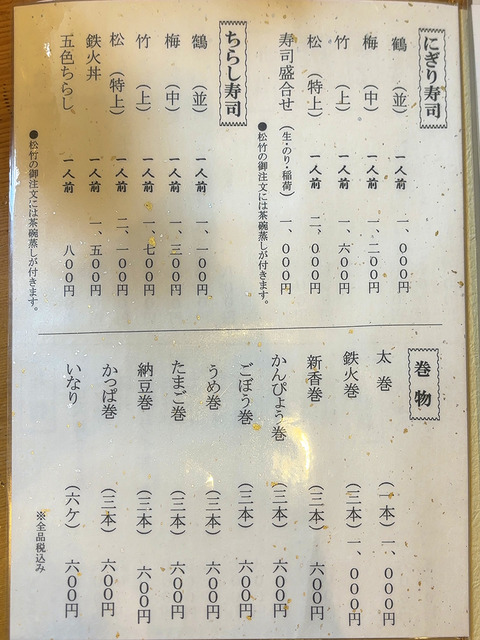 にぎり寿司
鶴 （並） 一人前 一、〇〇〇円
梅 （中） 一人前 一、二〇〇円
竹 （上） 一人前 一、六〇〇円
松 （特上） 一人前 二、〇〇〇円
寿司盛合せ （生・のり・稲荷） 一、〇〇〇円
●松竹の御注文には茶碗蒸しが付きます。
ちらし寿司
鶴 （並） 一人前 一、一〇〇円
梅 （中） 一人前 一、三〇〇円
竹 （上） 一人前 一、七〇〇円
松 （特上） 一人前 二、一〇〇円
鉄火丼 一人前 一、五〇〇円
五色ちらし 一人前 八〇〇円
●松竹の御注文には茶碗蒸しが付きます。
巻物
太巻 （一本） 一、〇〇〇円
鉄火巻 （三本） 一、〇〇〇円
新香巻 （三本） 六〇〇円
かんぴょう巻 （三本） 六〇〇円
ごぼう巻 （三本） 六〇〇円
うめ巻 （三本） 六〇〇円
たまご巻 （三本） 六〇〇円
納豆巻 （三本） 六〇〇円
かっぱ巻 （三本） 六〇〇円
いなり （六ケ） 六〇〇円
※全品税込み